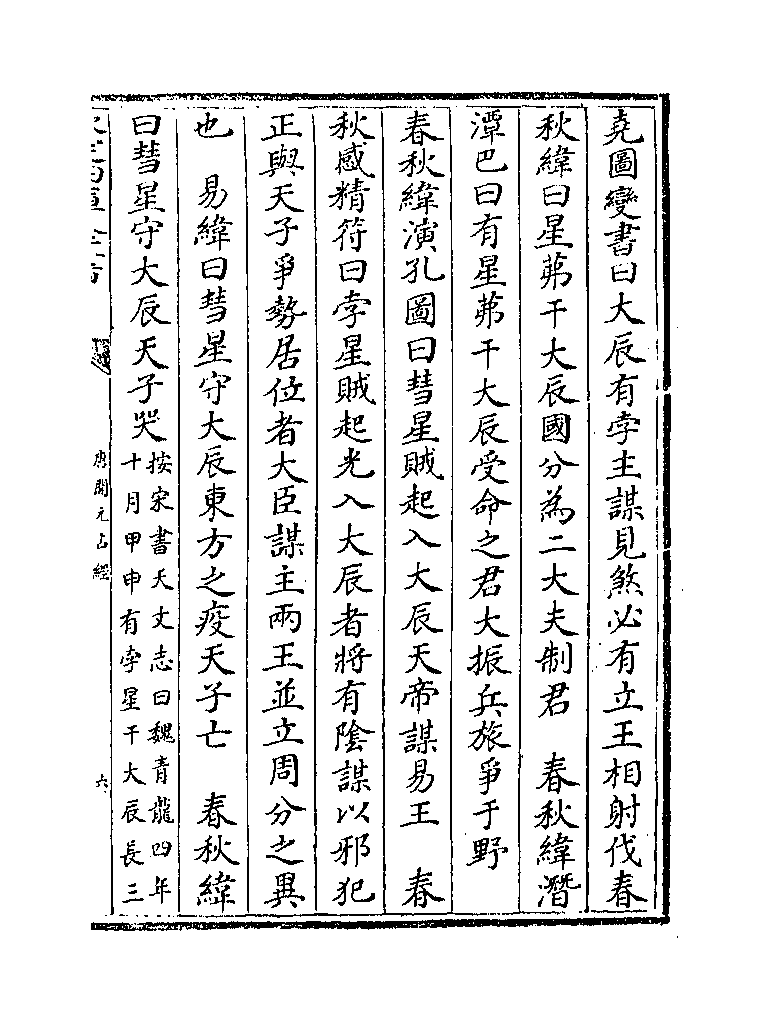 堯圖變書曰大辰有孛主謀見煞必有立王相射伐春
秋緯曰星茀干大辰國分為二大夫制君　春秋緯潛
潭巴曰有星茀干大辰受命之君大振兵旅爭于野
春秋緯演孔圖曰彗星賊起入大辰天帝謀易王　春
秋感精符曰孛星賊起光入大辰者將有陰謀以邪犯
正與天子爭勢居位者大臣謀主兩王並立周分之異
也　易緯曰彗星守大辰東方之疫天子亡　春秋緯
曰彗星守大辰天子哭
按宋書天文志曰魏青龍四年
十月甲申有孛星干大辰長三
唐開元占經
六